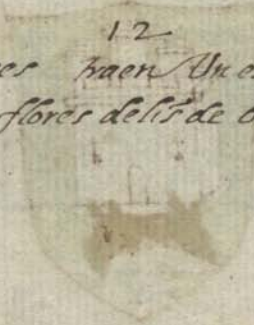 12
es traen Un e
flores de lis de o